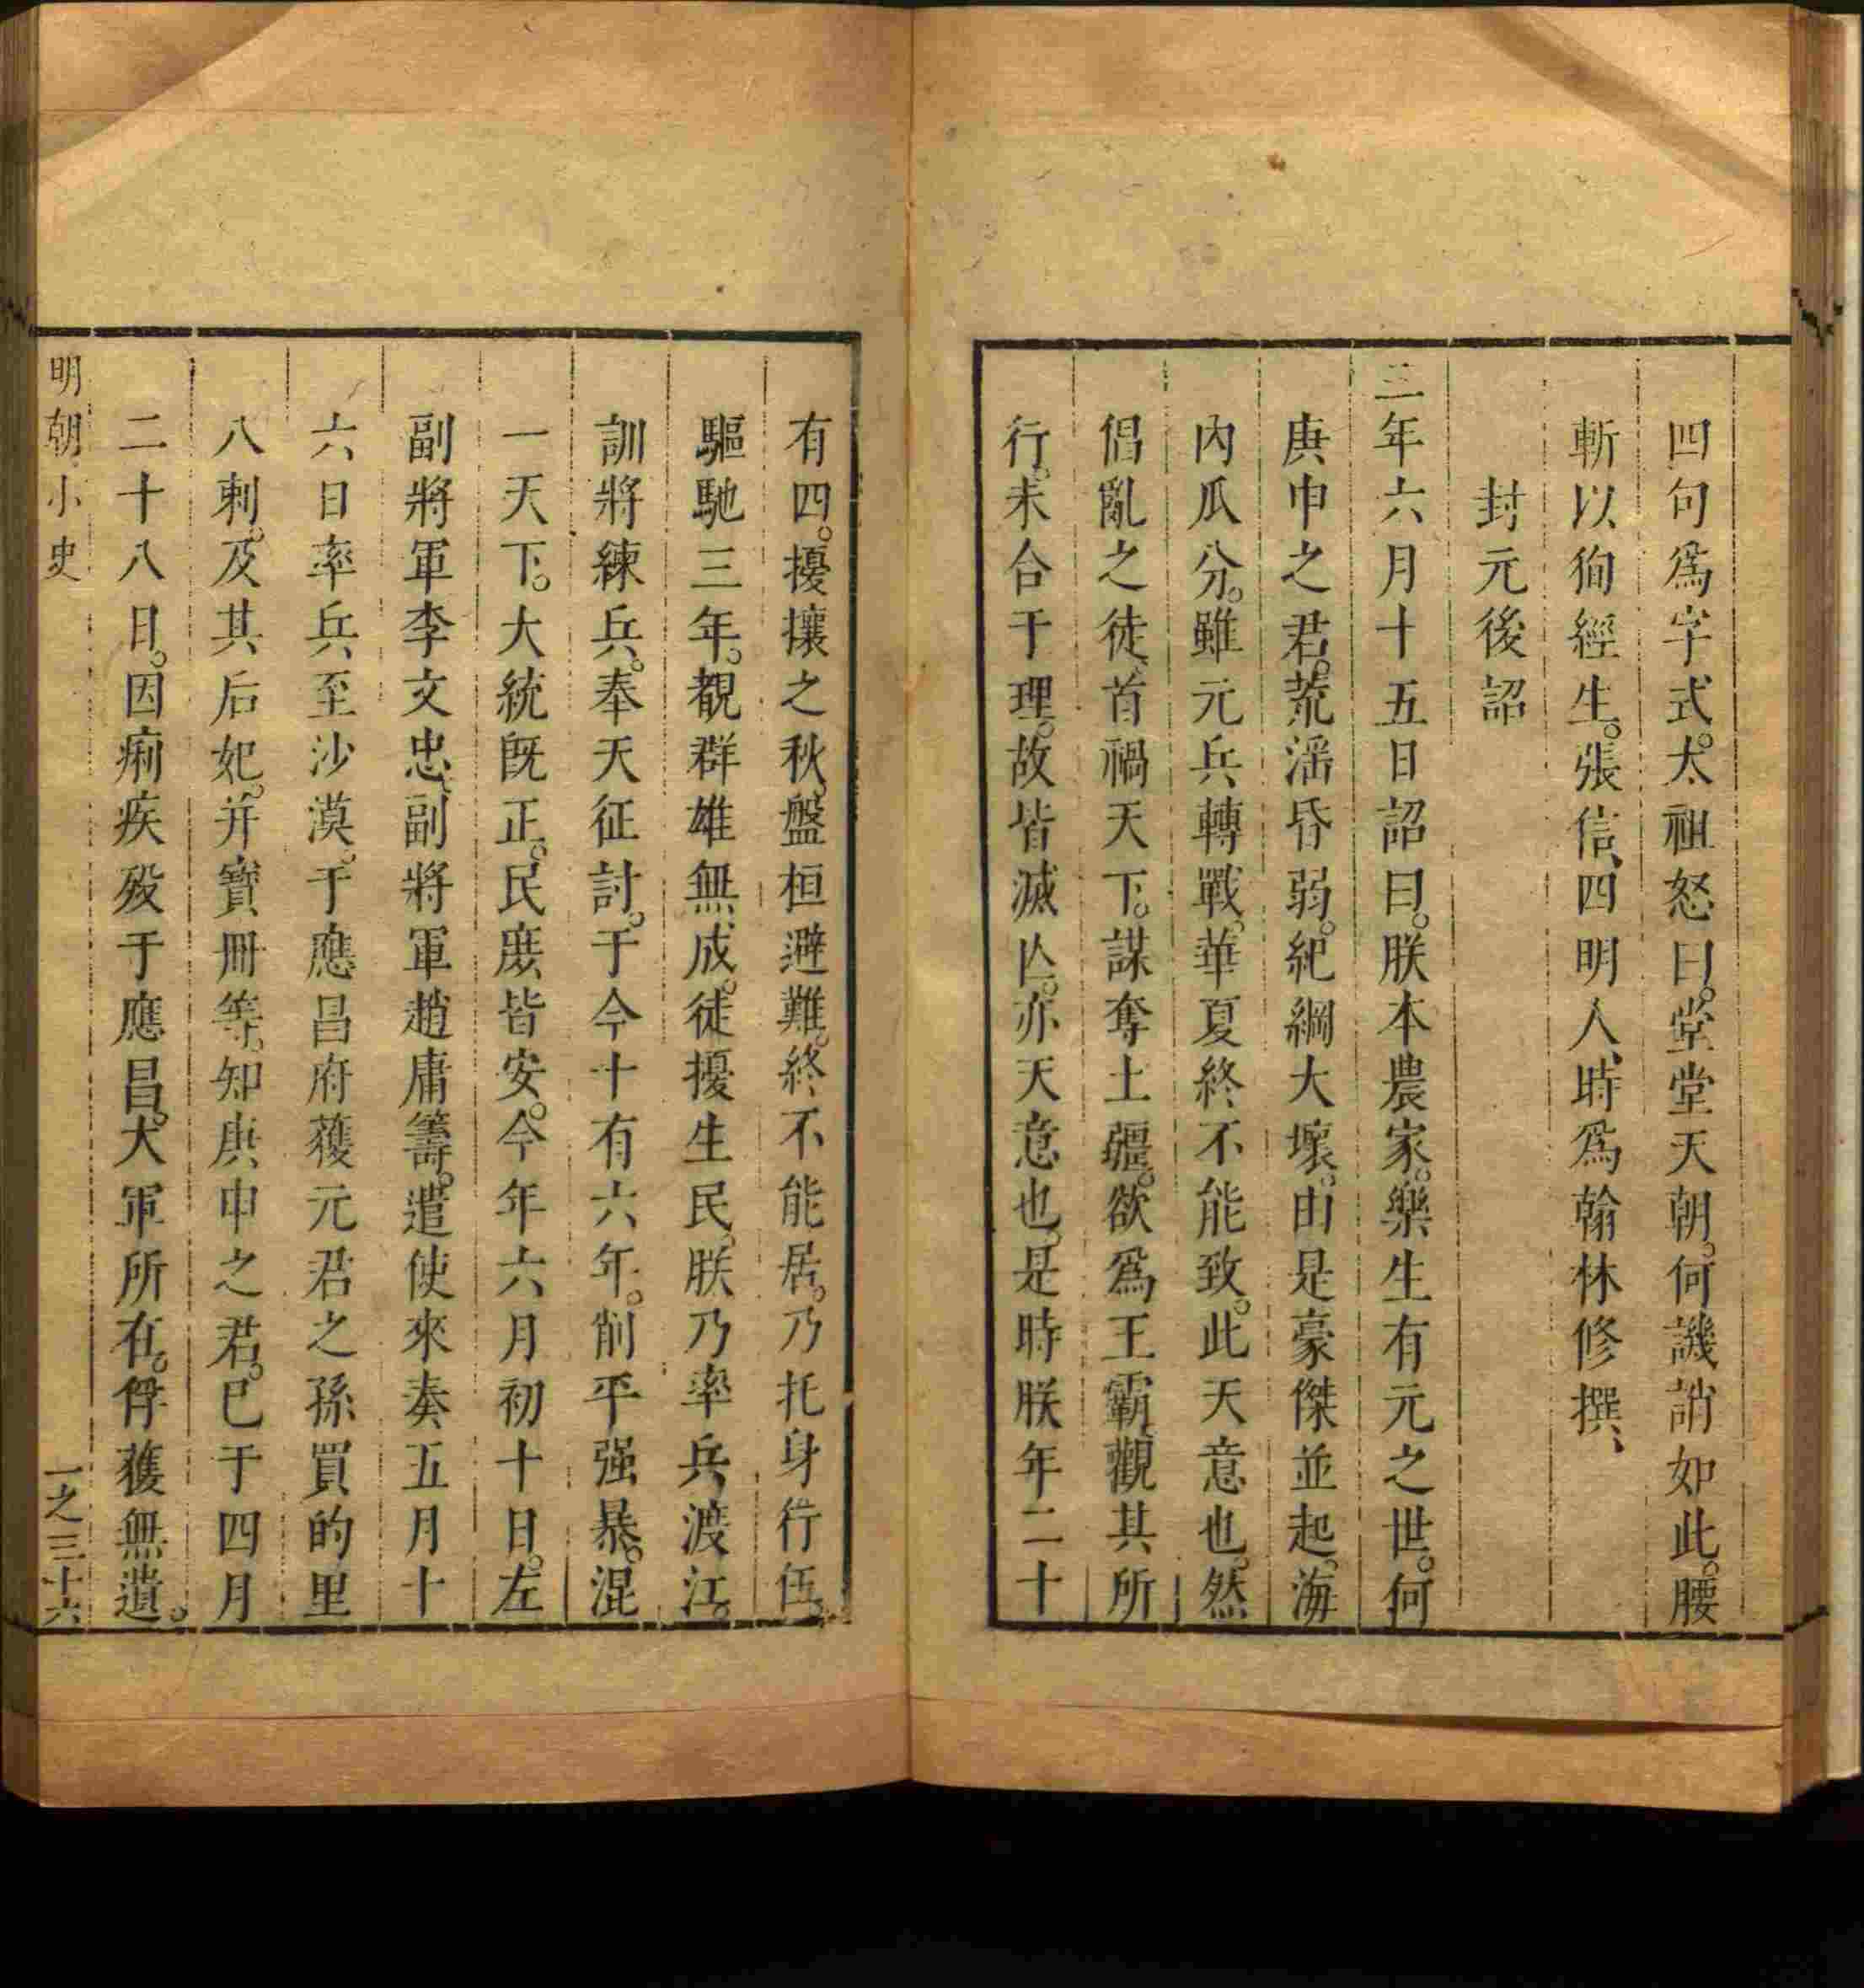 四句爲字式。太祖怒曰。堂堂天朝。何譏誚如此。腰
斬以狥經生。張信、四明人、時爲翰林修撰、
封元後詔
三年六月十五日詔曰。朕本農家。樂生有元之世。何
庚申之君。荒滛昏弱。紀綱大壞。由是豪傑並起。海
内瓜分。雖元兵轉戰。華夏終不能致。此天意也。然
倡亂之徒、首禍天下。謀奪土疆。欲爲王霸、觀其所
行。未合于理。故皆滅亾。亦天意也。是時朕年二十
有四。擾攘之秋、盤桓避難。終不能居。乃托身行伍。
驅馳三年。覩群雄無成。徒擾生民。朕乃率兵渡江。
訓將練兵。奉天征討。于今十有六年。削平强暴。混
一天下。大統旣正。民庻皆安。今年六月初十日。左
副將軍李文忠、副將軍趙庸籌。遣使來奏五月十
六日率兵至沙漠。于應昌府獲元君之孫買的里
八剌。及其后妃。并寶冊等。知庚申之君。已于四月
二十八日。因痢疾殁于應昌。大軍所在。俘獲無遺。
明朝小史
一之三十六